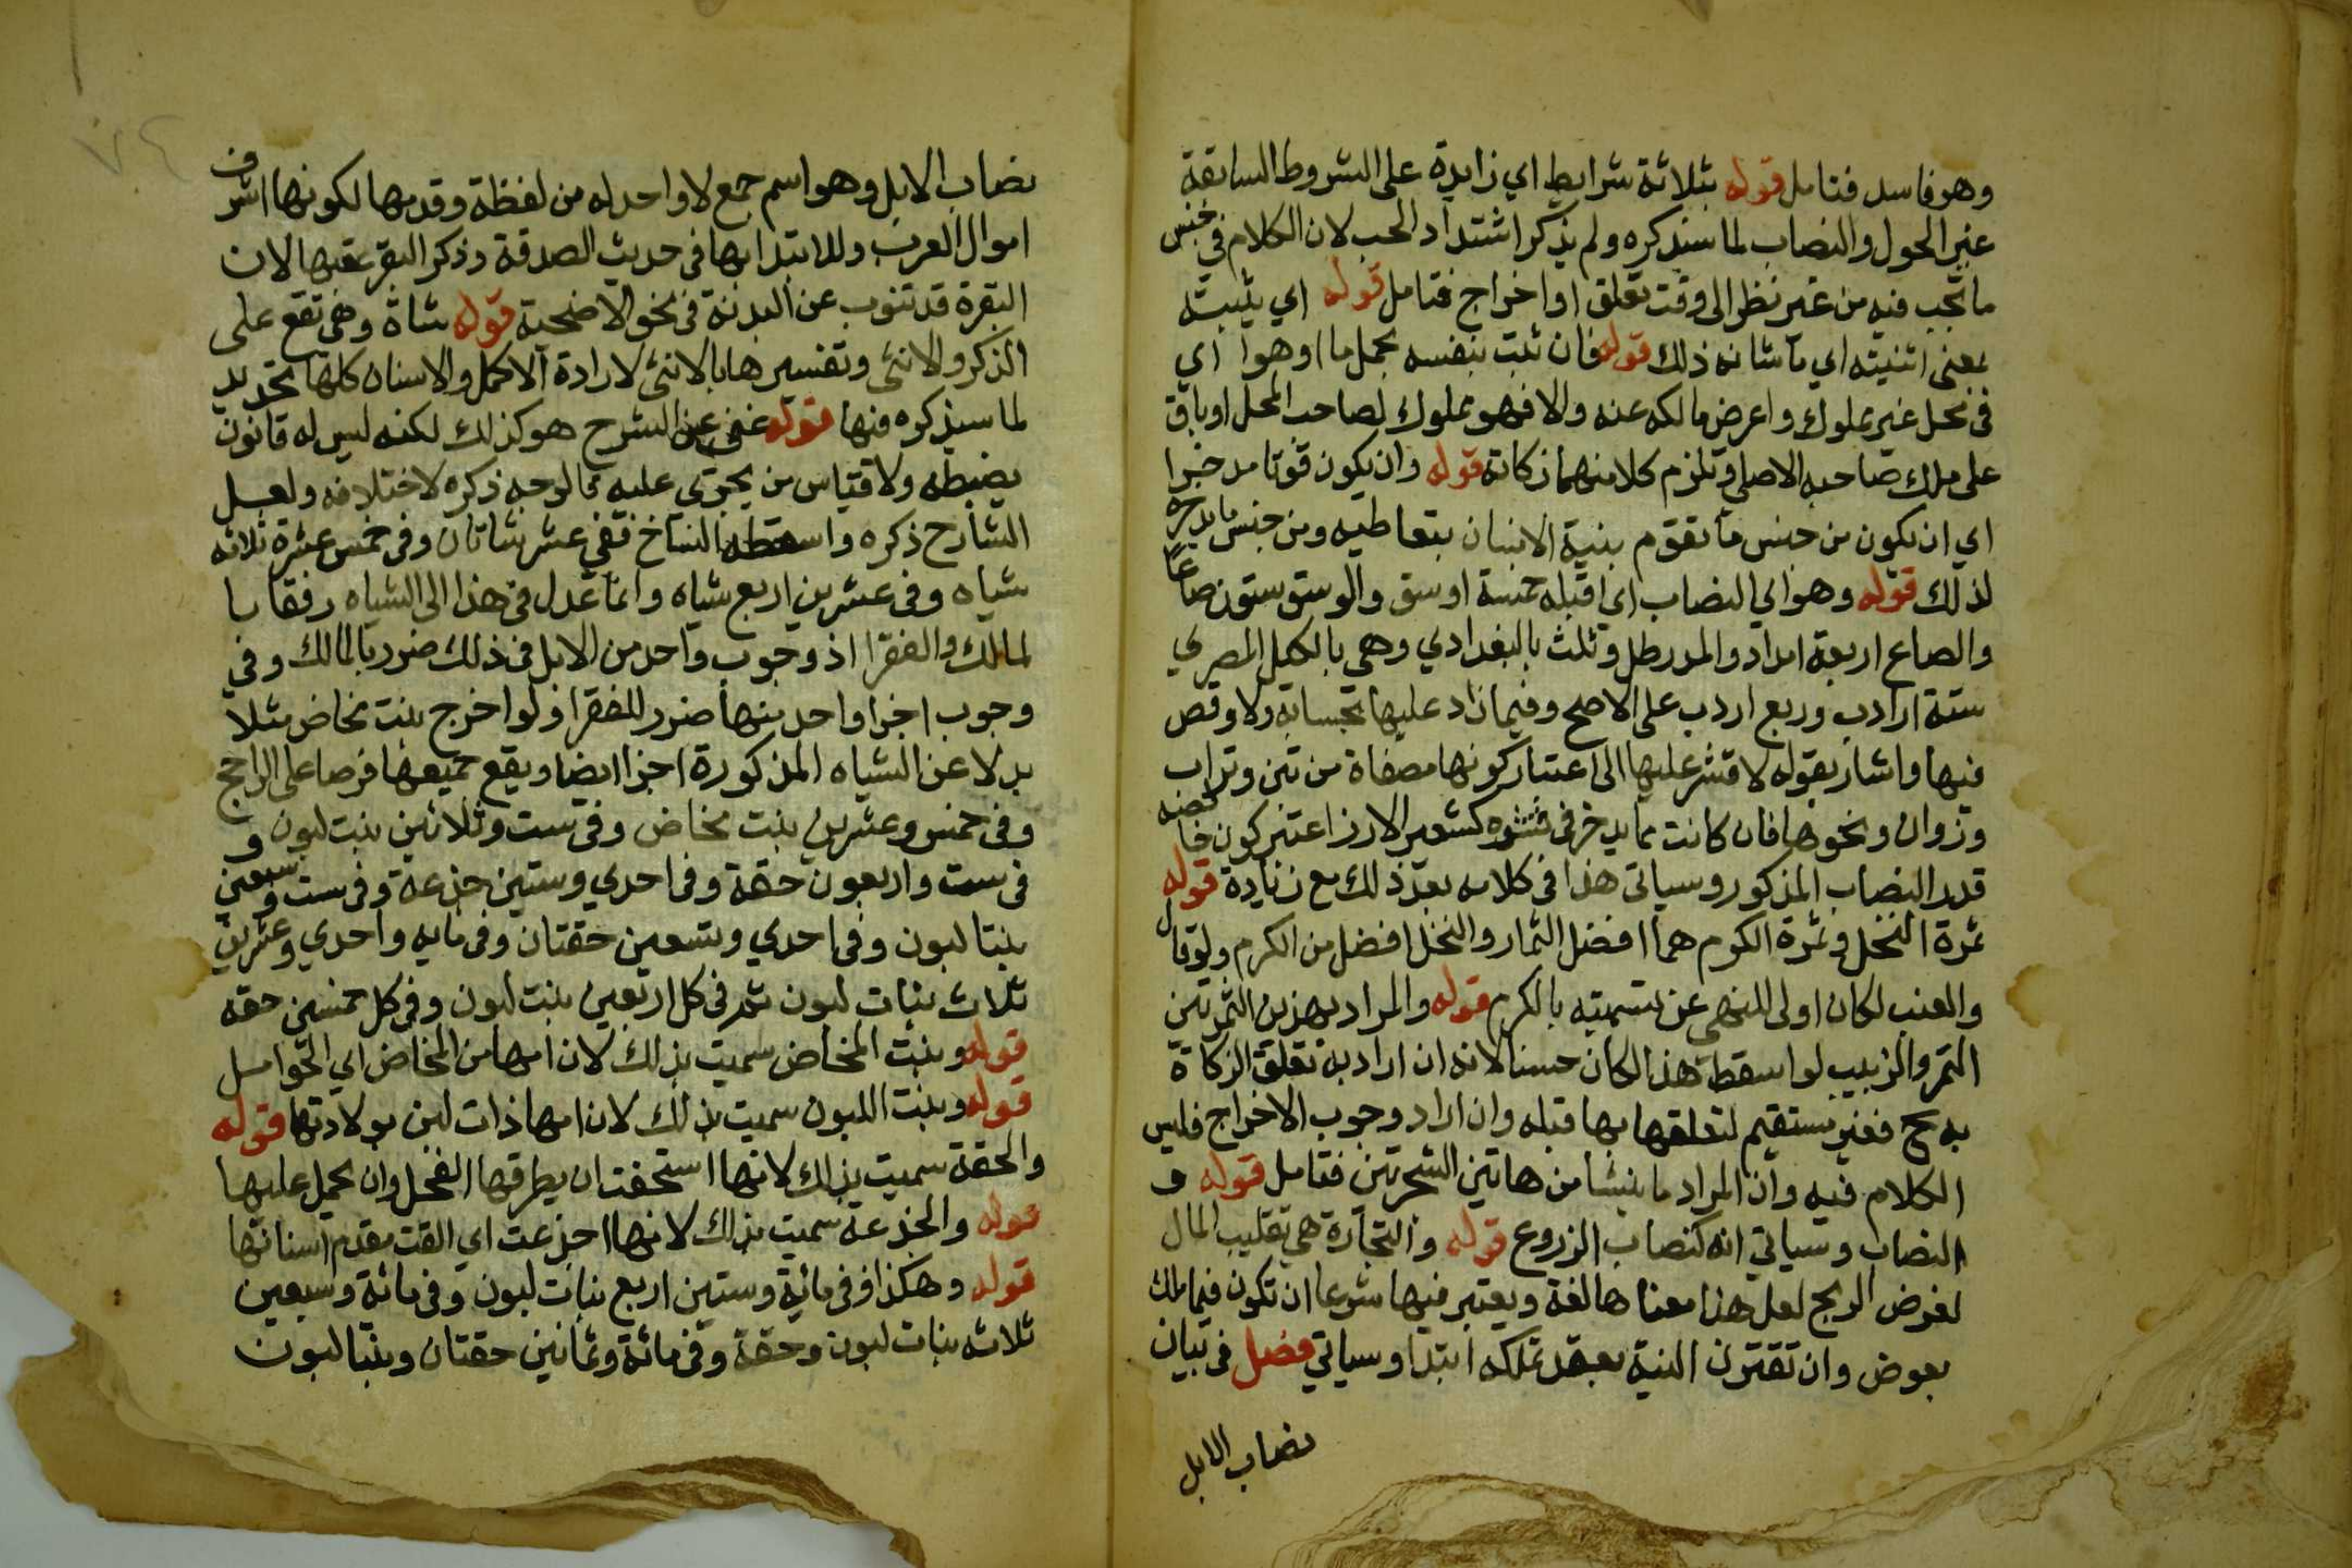 وهو فاسد فتامل قوله بثلاثة شرايط اي زايدة على الشروط السابقة
غير الحول والنصاب لما سنذكره ولم يذكر اشتداد الحب لان الكلام في جنس
ما تجب فيه من غير نظر الى وقت تعلق او اخراج فتامل قوله اي ينبته
بمعنى اي ما شانه ذلك قوله فان نبت بنفسه بحمل ما او هوا اي
في محل غير مملوك واعرض مالكه عنه والا فهو مملوك لصاحب المحل او باق
على ملك صاحبه الاصلي وتلزم كلا منهما زكاته قوله وان يكون قوتا مدخرا
اي ان يكون من جنس ما تقوم بنية الانسان بتعاطيه ومن جنس ما يدخره
لذلك قوله وهو اي النصاب اي اقله خمسة اوسق والوسق ستون صاعا
والصاع اربعة امداد والمد رطل وثلث بالبغدادي وهي بالكيل المصري
ستة ارادب وربع اردب على الاصح وفيما زاد عليها بحسابه ولا وقص
فيها واشار بقوله لا قشر عليها الى اعتبار كونها مصفاة من تبن وتراب
وزوان ونحوها فان كانت مما يدخر في قشوه كشعير الارز اعتبر كون خالصه
قدر النصاب المذكور وسياتي هذا في كلامه بعد ذلك مع زيادة قوله
ثمرة النخل وثمرة الكرم هما افضل الثمار والنخل افضل من الكرم ولو قال
والعنب لكان اولى للنهي عن تسميته بالكرم قوله والمراد بهذين الثمرتين
التمر والزبيب لو اسقط هذا لكان حسنا لانه ان اراد به تعلق الزكاة
به مح فغير مستقيم لتعلقها بها قبله وان اراد وجوب الاخراج فليس
الكلام فيه وان المراد ما ينشا من هاتين الشجرتين فتامل قوله و
النصاب وسياتي انه كنصاب الزروع قوله والتجارة هي تقليب المال
لغرض الربح لعل هذا معناها لغة ويعتبر فيها شرعا ان تكون فيما ملك
بعوض وان تقترن النية بعقد تملكه ابتدا وسياتي فصل في بيان
نصاب الابل
نصاب الابل وهو اسم جمع لا واحد له من لفظة وقدمها لكونها اشرف
اموال العرب وللابتدا بها في حديث الصدقة وذكر البقر عقبها لان
البقرة قد تنوب عن البدنة في نحو الاضحية قوله شاة وهي تقع على
الذكر والانثى وتفسيرها بالانثى لارادة الاكمل والاسنان كلها تحديد
لما سيذكره فيها قوله غني عن الشرح هو كذلك لكنه ليس له قانون
يضبطه ولا قياس من يجرى عليه فالوجه ذكره لاختلافه ولعل
الشارح ذكره واسقطه النساخ ففي عشر شاتان وفي خمس عشرة ثلاثه
شياه وفي عشرين اربع شياه وانما عدل في هذا الى الشياه رفقا با
لمالك والفقرا اذ وجوب واحد من الابل في ذلك ضرر بالمالك وفي
وجوب اجزا واحد منها ضرر للفقرا ولو اخرج بنت مخاض مثلا
بدلا عن الشياه المذكورة اجزا ايضا ويقع جميعها فرضا على الراجح
وفي خمس وعشرين بنت مخاض وفي ست وثلاثين بنت لبون و
في ست واربعون حقة وفي احدي وستين جذعة وفي ست وسبعين
بنتا لبون وفي احدي وتسعين حقتان وفي مايه واحدي وعشرين
ثلاث بنات لبون ثم في كل اربعين بنت لبون وفي كل خمسين حقه
قوله وبنت المخاض سميت بذلك لان امها من المخاض اي الحوامل
قوله وبنت اللبون سميت بذلك لان امها ذات لبن بولادتها قوله
والحقة سميت بذلك لانها استحقت ان يطرقها الفحل وان يحمل عليها
قوله والجذعة سميت بذلك لانها اجذعت اي القت مقدم اسنانها
قوله وهكذا ففي مائية وستين اربع بنات لبون وفي مائة وسبعين
ثلاث بنات لبون وحقة وفي مائة وثمانين حقتان وبنتا لبون